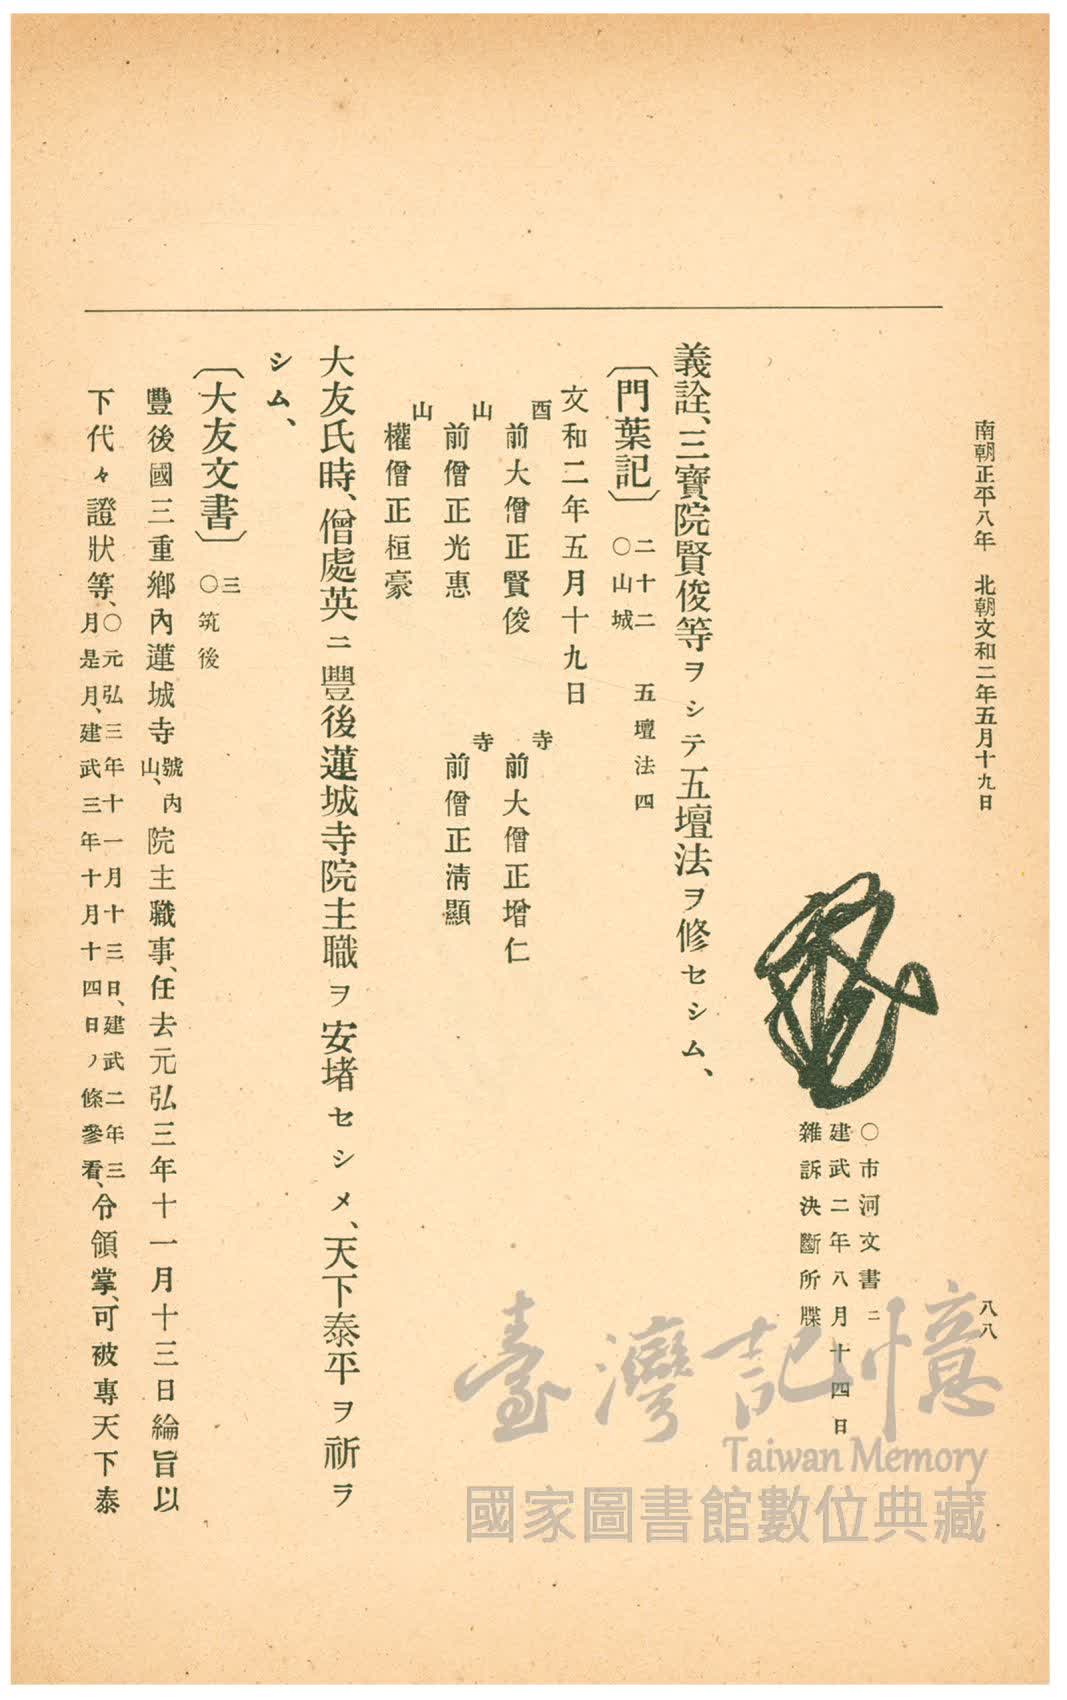 南朝正平八年　北朝文和二年五月十九日
八八
○市河文書ニ
建武二年八月十四日
雜訴決斷所牒
義詮、三寶院賢俊等ヲシテ五壇法ヲ修セシム、
〔門葉記〕
二十二　五壇法四
○山城
文和二年五月十九日
酉
前大僧正賢俊
寺
前大僧正增仁
山
前僧正光惠
寺
前僧正淸顯
山
權僧正桓豪
大友氏時、僧處英ニ豐後蓮城寺院主職ヲ安堵セシメ、天下泰平ヲ祈ラ
シム、
〔大友文書〕
三
○筑後
豐後國三重鄕內蓮城寺號內山、院主職事、任去元弘三年十一月十三日綸旨以
下代々證狀等、○元弘三年十一月十三日、建武二年三月是月、建武三年十月十四日ノ條參看、令領掌、可被專天下泰
臺灣記憶
Taiwan Memory
國家圖書館數位典藏